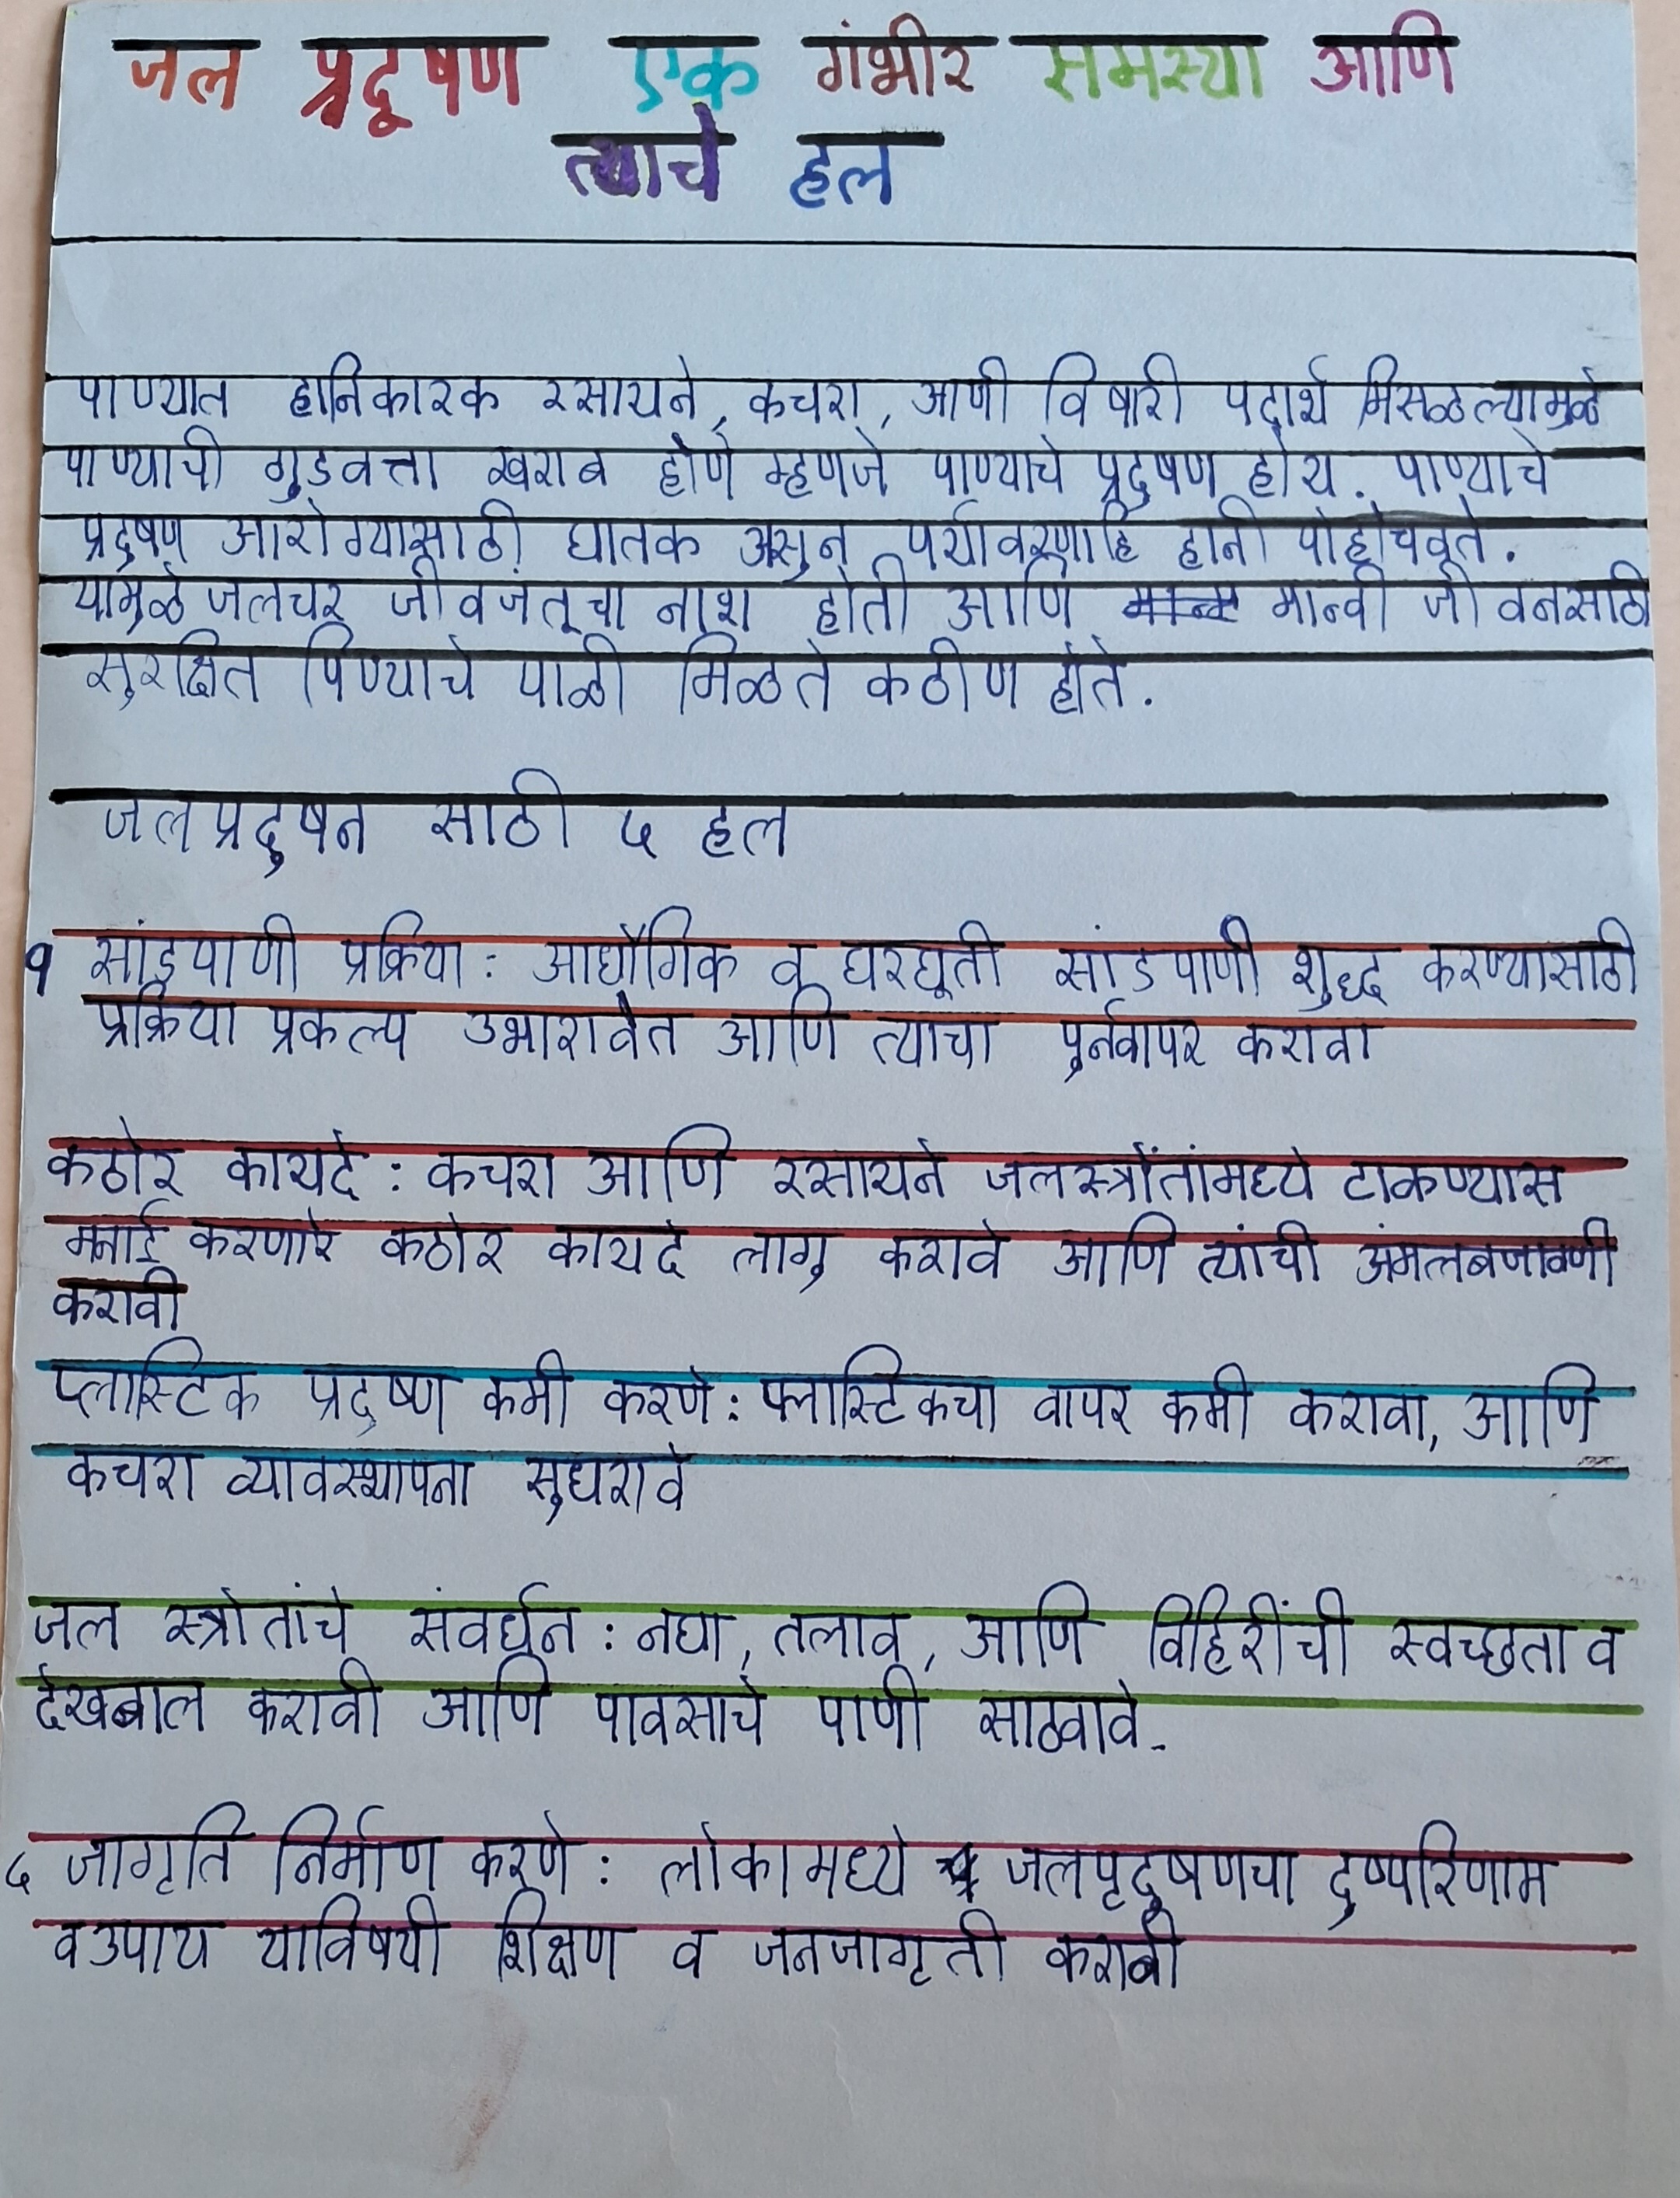 जल प्रदूषण एक गंभीर समस्या आणि
त्याचे हल
पाण्यात हानिकारक रसायने, कचरा, आणी विषारी पदार्थ मिसळल्यामुळे
पाण्याची गुडवत्ता खराब होणे म्हणजे पाण्याचे प्रदुषण होय. पाण्याचे
प्रदुषण आरोग्यासाठी घातक असुन पर्यावरणाहि हानी पोहोचवते.
यामुळे जलचर जीवजंतूचा नाश होतो आणि मान्वी जीवनसाठी
सुरक्षित पिण्याचे पाळी मिळते कठीण होते.
जलप्रदुषन साठी ५ हल
१ सांडपाणी प्रक्रिया: आद्यौगिक व घरघूती सांडपाणी शुद्ध करण्यासाठी
प्रक्रिया प्रकल्प उभारावेत आणि त्याचा पुर्नवापर करावा
कठोर कायदे: कचरा आणि रसायने जलस्त्रोंतांमध्ये टाकण्यास
मनाई करणारे कठोर कायदे लागु करावे आणि त्यांची अंमलबजावणी
करावी
प्लास्टिक प्रदुष्ण कमी करणे: प्लास्टिकचा वापर कमी करावा, आणि
कचरा व्यावस्थापना सुधरावे
जल स्त्रोतांचे संवर्धन: नद्या, तलाव, आणि विहिरींची स्वच्छता व
देखबाल करावी आणि पावसाचे पाणी साठवावे.
५ जागृति निर्माण करणे: लोकामध्ये जलपृदुषणचा दुष्परिणाम
व उपाय याविषयी शिक्षण व जनजागृती करावी